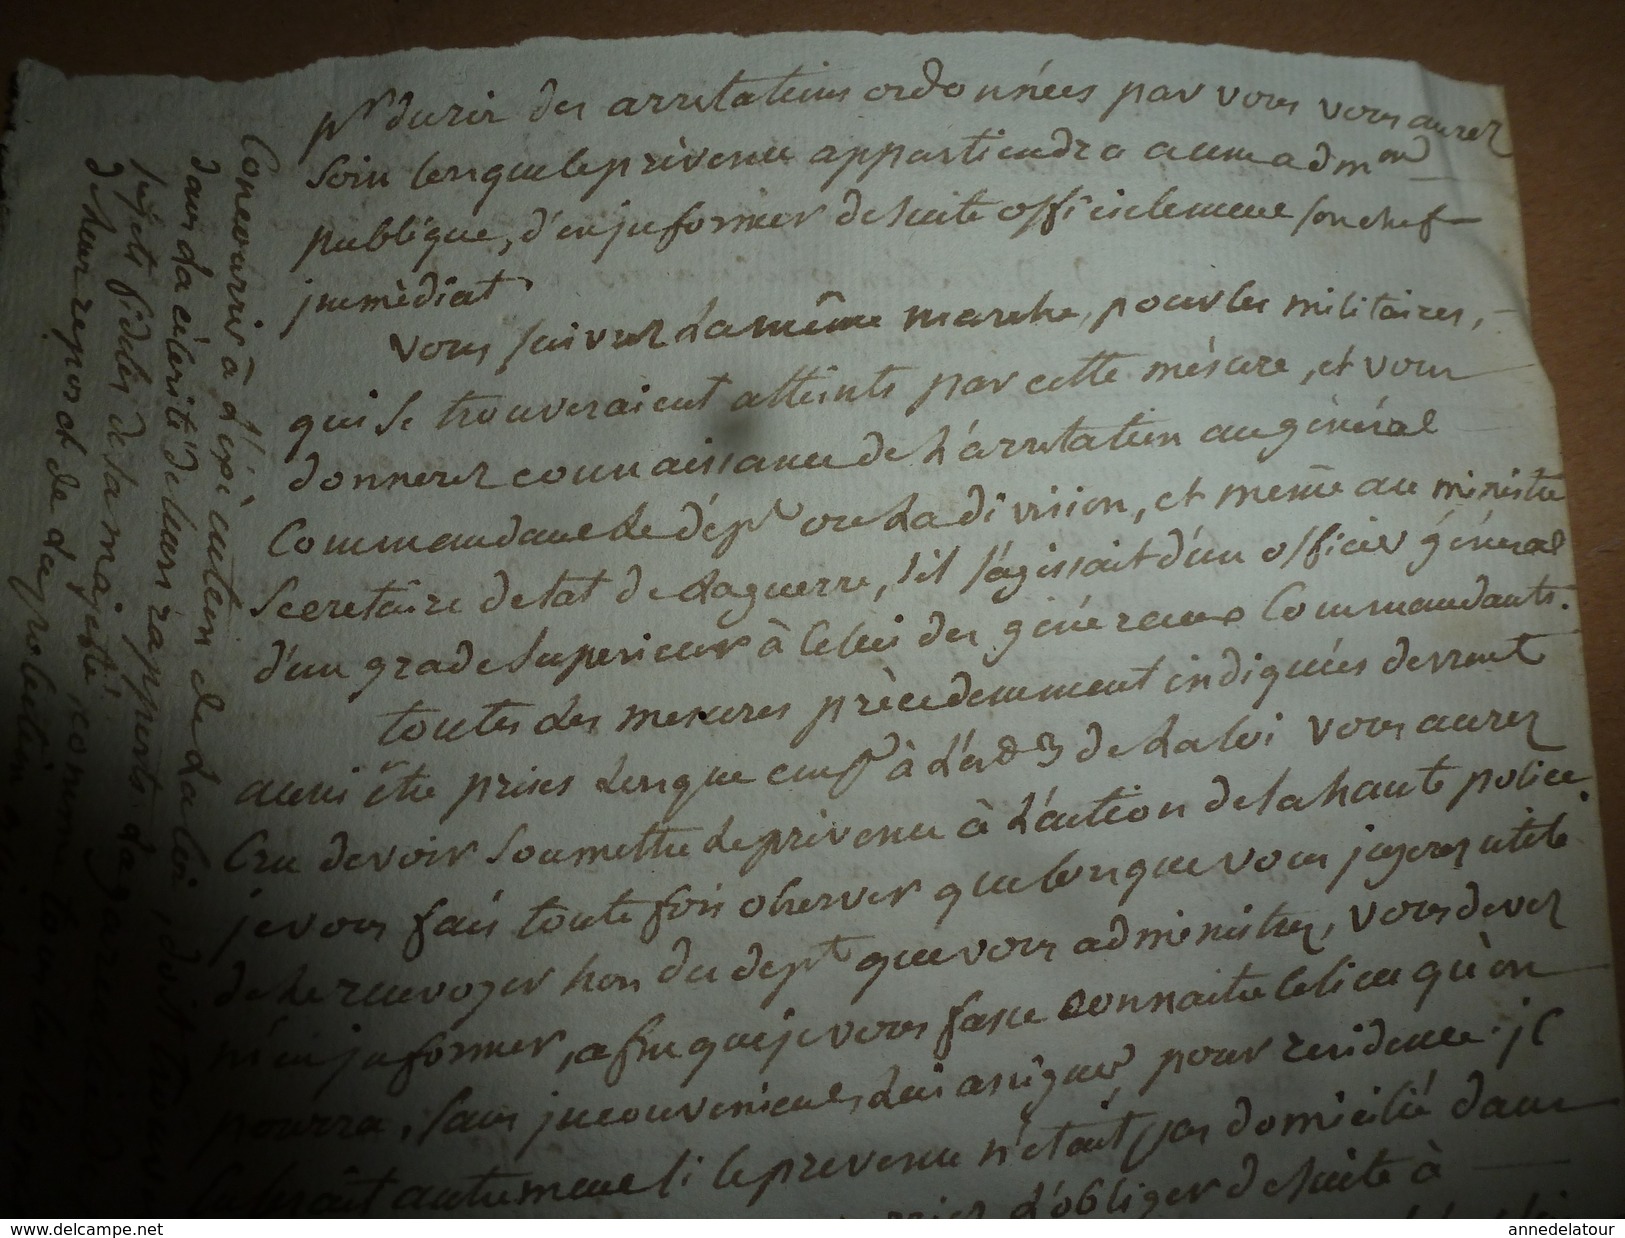 pr durée des arrestations ordonnées par vous vous aurez
soin lorsque le prévenu appartiendra a une admon
publique, d'en juformer de suite officielement son chef
jmmédiat
vous suivrez la même marche, pour les militaires,
qui se trouveraient atteints par cette mésure, et vous
donnerez connaissance de l'arrestation au général
Commandant le dépt ou la division, et même au ministre
Secretaire detat de la guerre, s'il s'agissait d'un officier général
d'un grade superieur à celui des généraux Commandants.
toutes les mesures précedemment indiquées devront
aussi être prises lorsque à de la loi vous aurez
Cru devoir soumettre le prévenu à l'action de la haute police
je vous fais toute fois observer que lorsque vous jugerez utile
de le renvoyer hors du dept que vous administrez, vous devez
m'en juformer, afin que je vous fasse connaitre le lieu qu'on
pourra, sans jnconvenient lui assigner pour residence. jl
en serait autrement si le prevenu n'etait pas domicilié dans
l'obliger de suite à
Concourir à l'éxécution de la loi, doit
dans la célérité de leurs rapports. la garantie
sujets fidéles de sa majesté, comme tous les
de leur repos et de la protection